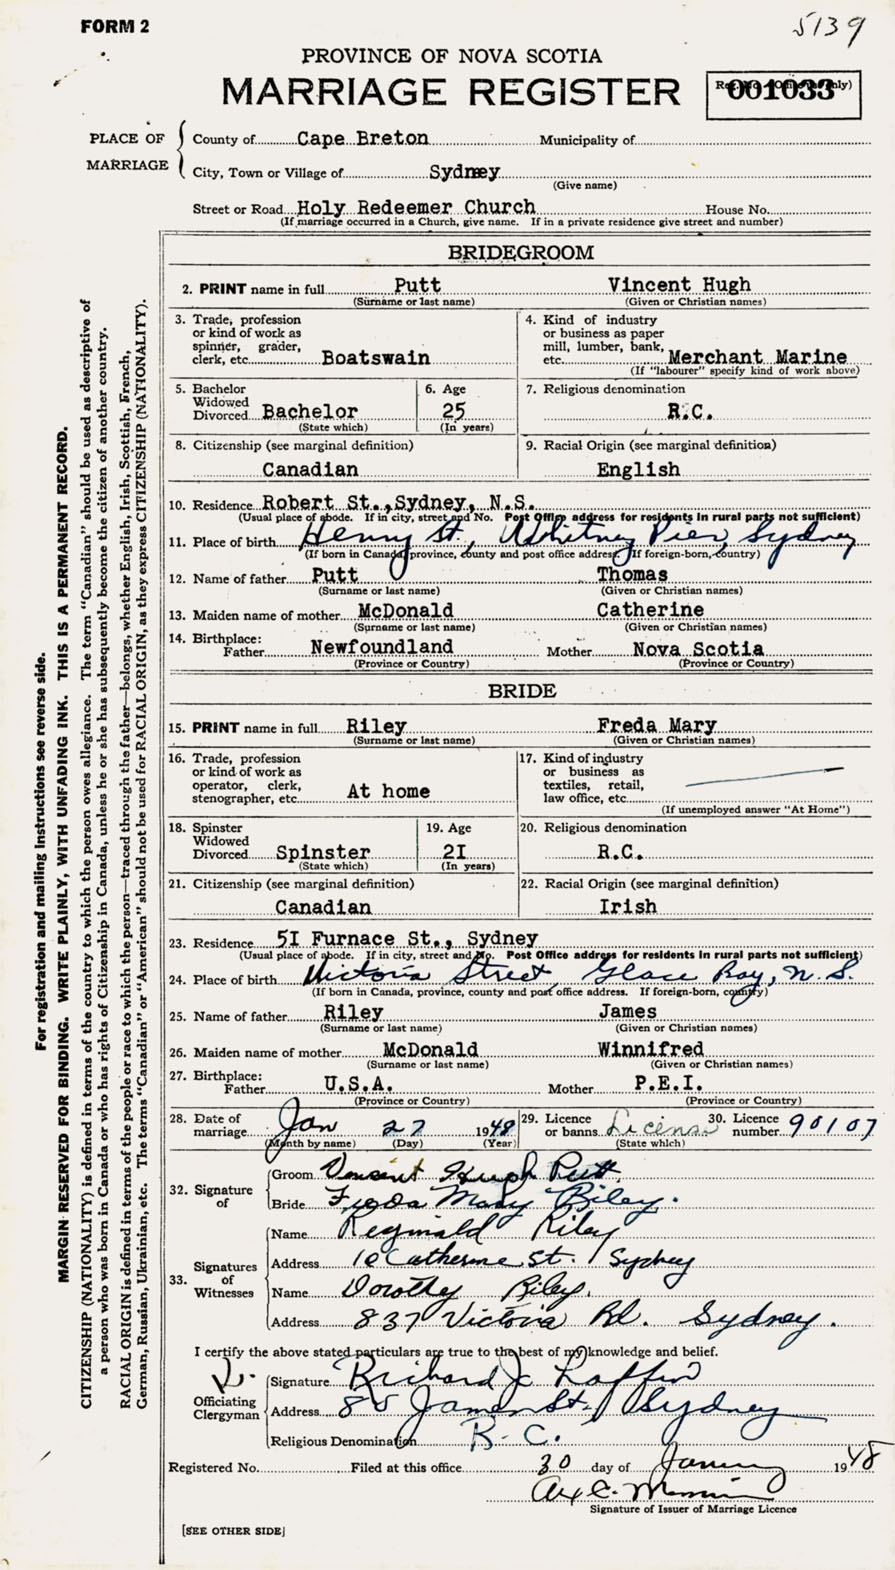 FORM 2
5139
PROVINCE OF NOVA SCOTIA
MARRIAGE REGISTER
001033
PLACE OF MARRIAGE
County of Cape Breton Municipality of
City, Town or Village of Sydney
(Give name)
Street or Road Holy Redeemer Church House No.
(If marriage occurred in a Church, give name. If in a private residence give street and number)
BRIDEGROOM
2. PRINT name in full Putt Vincent Hugh
(Surname or last name) (Given or Christian names)
3. Trade, profession or kind of work as spinner, grader, clerk, etc. Boatswain
4. Kind of industry or business as paper mill, lumber, bank, etc. Merchant Marine
(If "labourer" specify kind of work above)
5. Bachelor Widowed Divorced Bachelor
(State which)
6. Age 25
(In years)
7. Religious denomination R.C.
8. Citizenship (see marginal definition) Canadian
9. Racial Origin (see marginal definition) English
10. Residence Robert St., Sydney, N.S.
(Usual place of abode. If in city, street and No. Post Office address for residents in rural parts not sufficient)
11. Place of birth Henry St., Whitney Pier, Sydney
(If born in Canada, province, county and post office address. If foreign-born, country)
12. Name of father Putt Thomas
(Surname or last name) (Given or Christian names)
13. Maiden name of mother McDonald Catherine
(Surname or last name) (Given or Christian names)
14. Birthplace: Father Newfoundland Mother Nova Scotia
(Province or Country) (Province or Country)
BRIDE
15. PRINT name in full Riley Freda Mary
(Surname or last name) (Given or Christian names)
16. Trade, profession or kind of work as operator, clerk, stenographer, etc. At home
17. Kind of industry or business as textiles, retail, law office, etc.
(If unemployed answer "At Home")
18. Spinster Widowed Divorced Spinster
(State which)
19. Age 2I
(In years)
20. Religious denomination R.C.
21. Citizenship (see marginal definition) Canadian
22. Racial Origin (see marginal definition) Irish
23. Residence 5I Furnace St., Sydney
(Usual place of abode. If in city, street and No. Post Office address for residents in rural parts not sufficient)
24. Place of birth Victoria Street, Glace Bay, N.S.
(If born in Canada, province, county and post office address. If foreign-born, country)
25. Name of father Riley James
(Surname or last name) (Given or Christian names)
26. Maiden name of mother McDonald Winnifred
(Surname or last name) (Given or Christian names)
27. Birthplace: Father U.S.A. Mother P.E.I.
(Province or Country) (Province or Country)
28. Date of marriage Jan 27 1948
(Month by name) (Day) (Year)
29. Licence or banns License
(State which)
30. Licence number 90107
32. Signature of
Groom Vincent Hugh Putt
Bride Freda Mary Riley.
33. Signatures of Witnesses
Name Reginald Riley
Address 10 Catherine St. Sydney
Name Dorothy Riley.
Address 837 Victoria Rd. Sydney.
I certify the above stated particulars are true to the best of my knowledge and belief.
Officiating Clergyman
Signature Richard J.
Address 85 James St. Sydney
Religious Denomination R.C.
Registered No. Filed at this office 30 day of January 1948
Signature of Issuer of Marriage Licence
[SEE OTHER SIDE]
For registration and mailing instructions see reverse side.
MARGIN RESERVED FOR BINDING. WRITE PLAINLY, WITH UNFADING INK. THIS IS A PERMANENT RECORD.
CITIZENSHIP (NATIONALITY) is defined in terms of the country to which the person owes allegiance. The term "Canadian" should be used as descriptive of
a person who was born in Canada or who has rights of Citizenship in Canada, unless he or she has subsequently become the citizen of another country.
RACIAL ORIGIN is defined in terms of the people or race to which the person—traced through the father—belongs, whether English, Irish, Scottish, French,
German, Russian, Ukrainian, etc. The terms "Canadian" or "American" should not be used for RACIAL ORIGIN, as they express CITIZENSHIP (NATIONALITY).